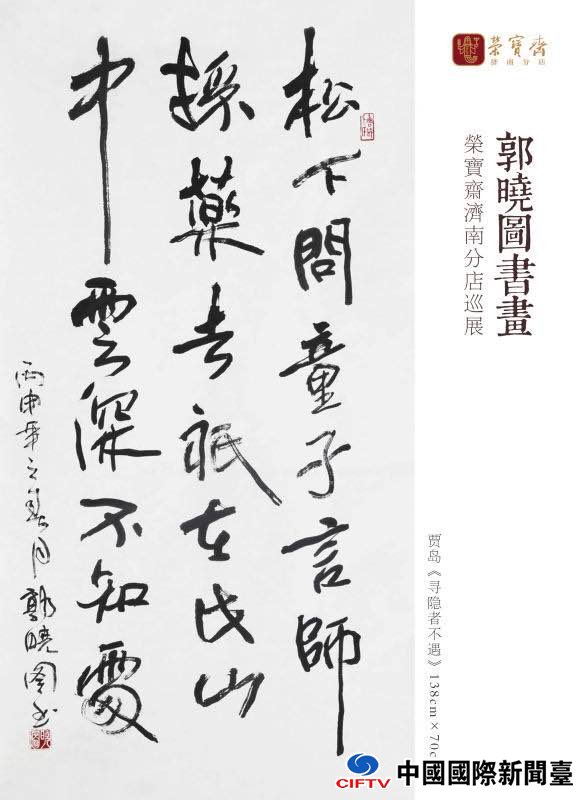 松下問童子言師
採藥去祇在此山
中雲深不知處
丙申年之春月郭曉圖書
榮寶齋
濟南分店
郭曉圖書畫
榮寶齋濟南分店巡展
贾岛《寻隐者不遇》138cm×70c
CIFTV
中國國際新聞臺